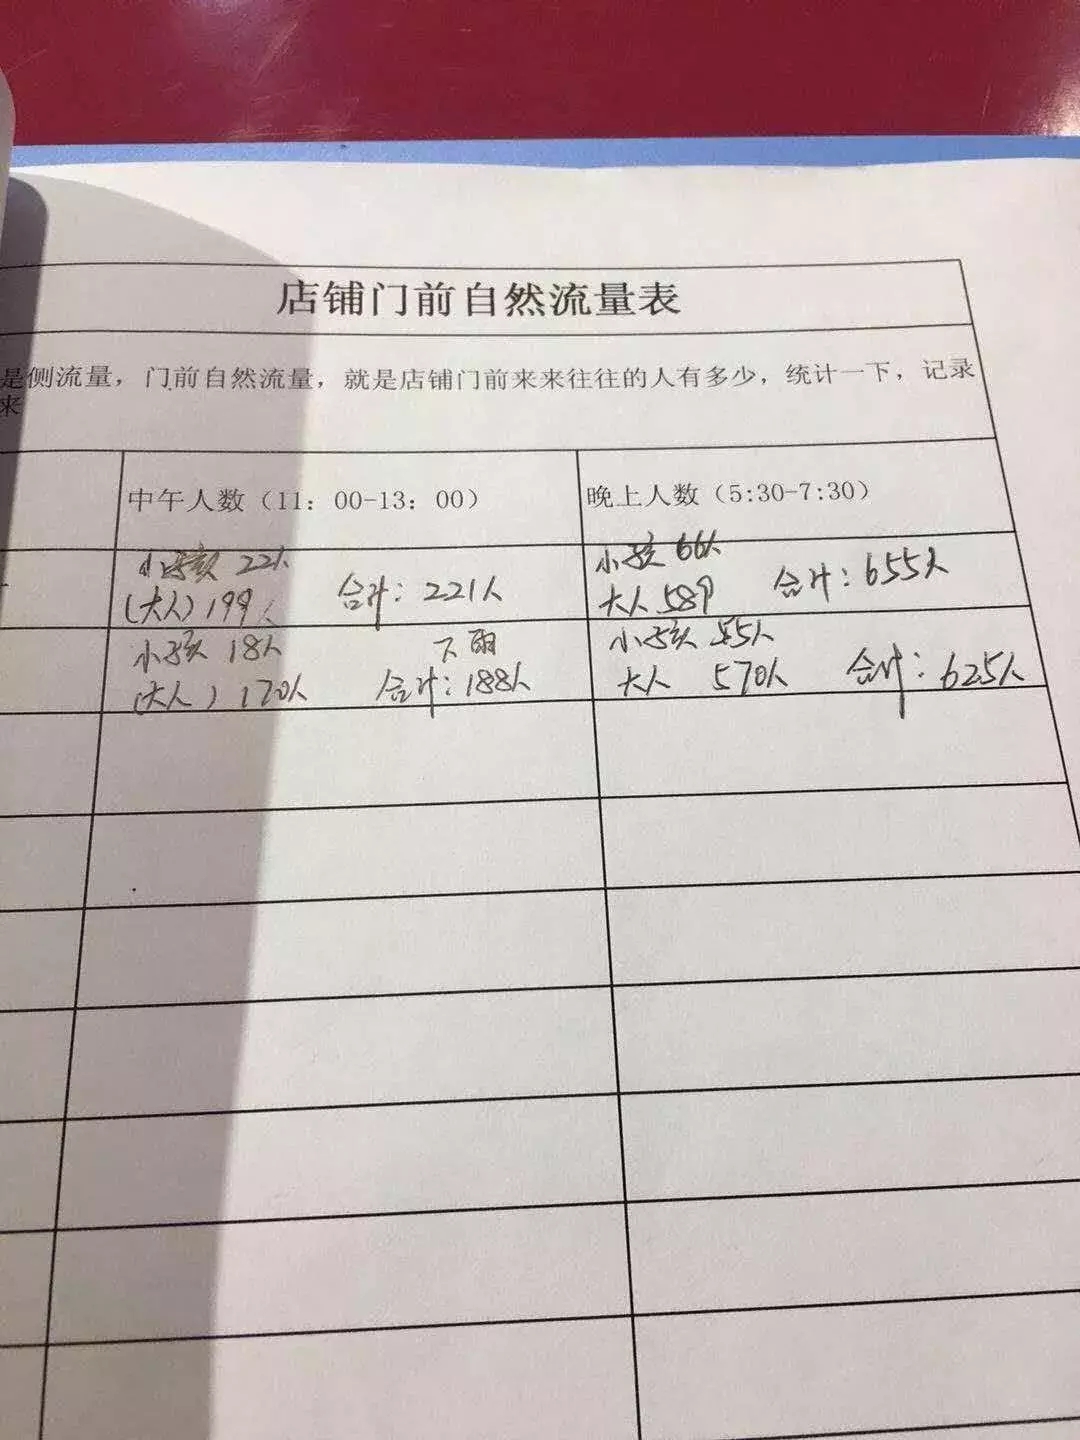 店铺门前自然流量表
是侧流量，门前自然流量，就是店铺门前来来往往的人有多少，统计一下，记录
来
中午人数（11：00-13：00）
晚上人数（5:30-7:30）
小孩 22人
(大人) 199人 合计：221人
小孩 66人
大人 589 合计：655人
小孩 18人 下雨
(大人) 170人 合计：188人
小孩 55人
大人 570人 合计：625人